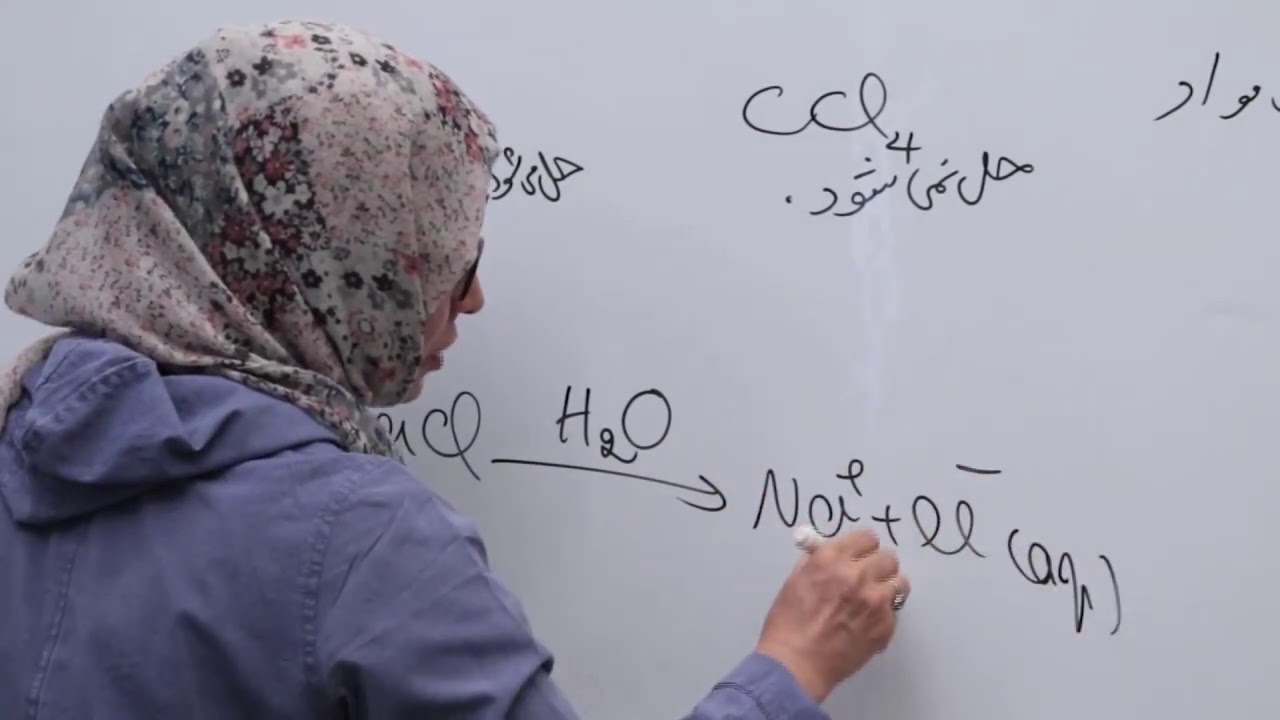 مواد
CCl4
حل نمی شود.
حل می شود
aCl H2O → Na+ + Cl- (aq)